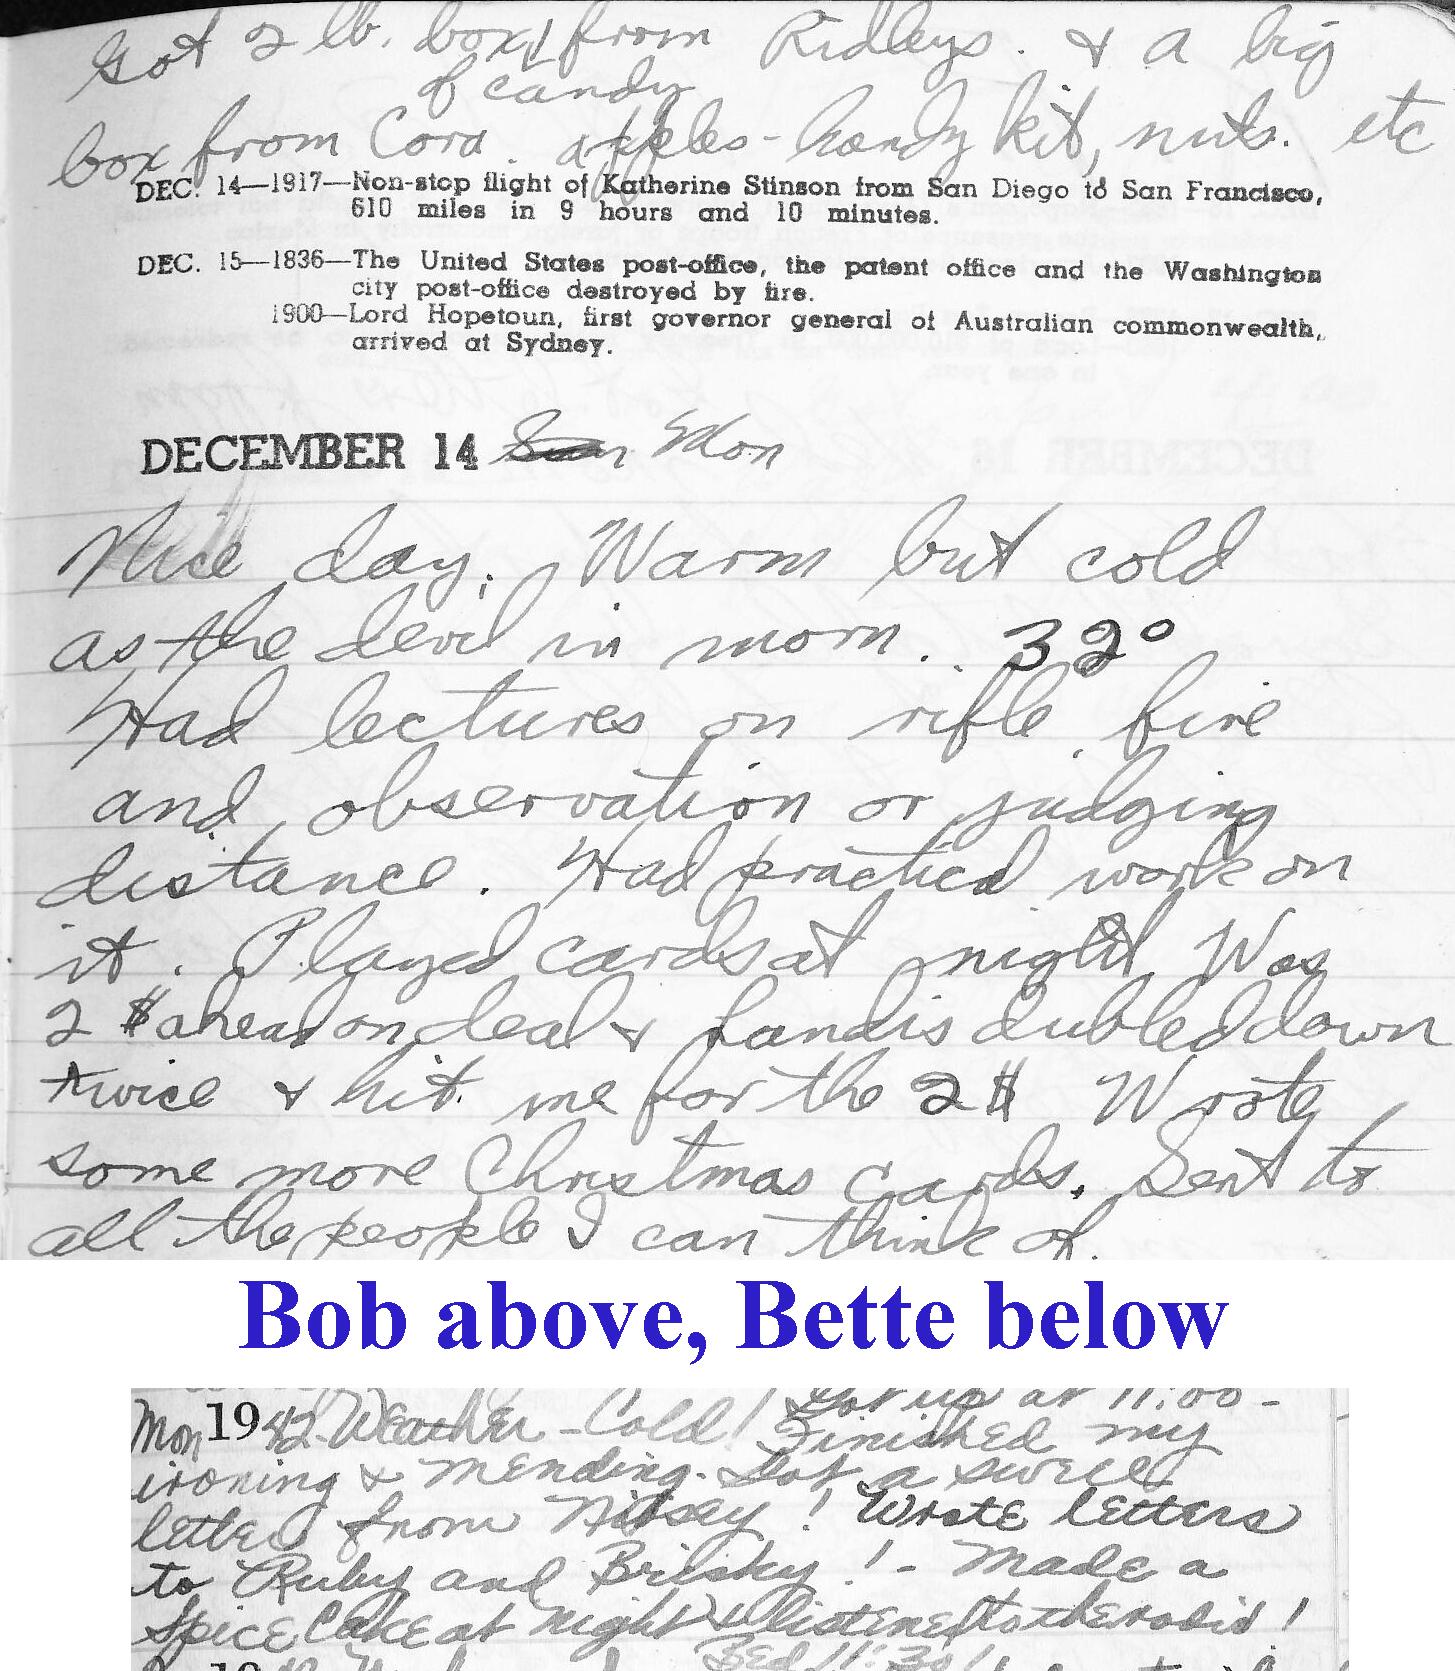 Got 2 lb. box from Ridleys. & a big
of candy
box from Cora. apples - handy kit, nuts. etc
DEC. 14—1917—Non-stop flight of Katherine Stinson from San Diego to San Francisco,
610 miles in 9 hours and 10 minutes.
DEC. 15—1836—The United States post-office, the patent office and the Washington
city post-office destroyed by fire.
1900—Lord Hopetoun, first governor general of Australian commonwealth,
arrived at Sydney.
DECEMBER 14 Sun Mon
Nice day. Warm but cold
as the devil in morn. 32°
Had lectures on rifle fire
and observation or judging
distance. Had practical work on
it. Played cards at night Was
2 $ ahead on deal & Landis dubled down
twice & hit me for the 2$ Wrote
some more Christmas cards. Sent to
all the people I can think of.
Bob above, Bette below
Got up at 11:00 -
Mon 1942 Weather - Cold! Finished my
ironing & mending. Got a swell
letter from ! Wrote letters
to Ruby and Brisky! - Made a
Spice Cake at night & listened to the radio!
Bed 11:30!